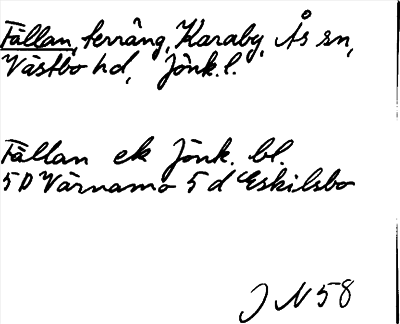 Fällan, terräng, Karaby, Ås sn,
Västbo hd, Jönk. l.
Fällan ek Jönk. bl.
5D Värnamo 5 d Eskilsbo
J N 58